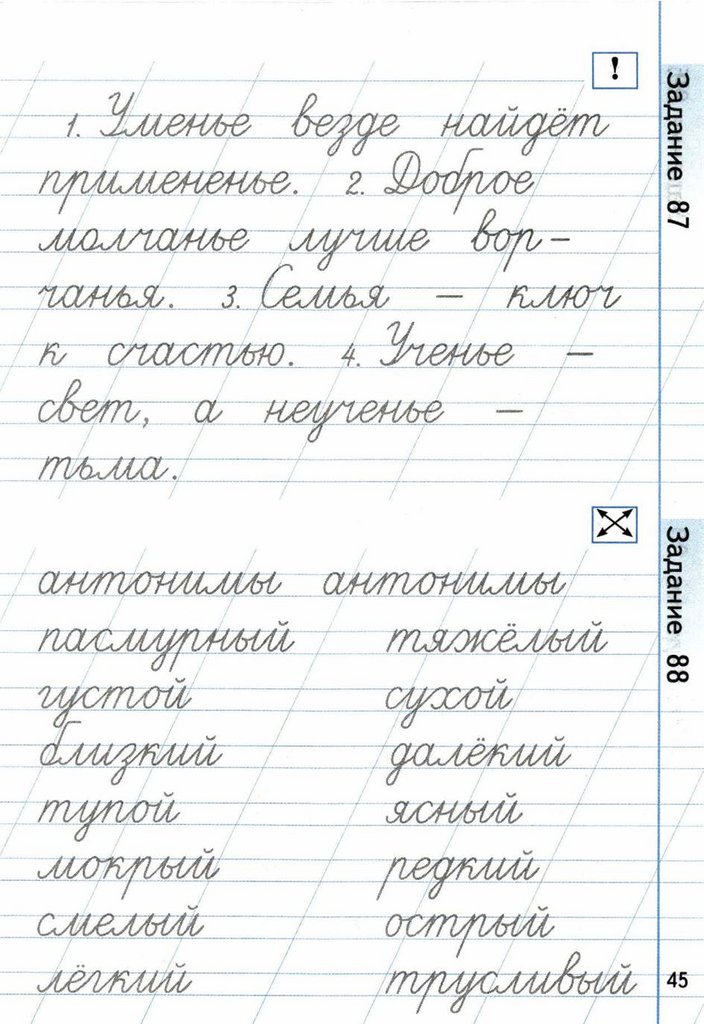 !
Задание 87
1. Уменье везде найдёт
примененье. 2. Доброе
молчанье лучше вор-
чанья. 3. Семья – ключ
к счастью. 4. Ученье –
свет, а неученье –
тьма.
Задание 88
антонимы антонимы
пасмурный тяжёлый
густой сухой
близкий далёкий
тупой ясный
мокрый редкий
смелый острый
лёгкий трусливый
45